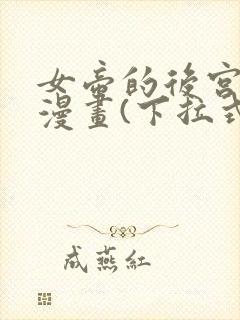 女帝的後宮
漫畫(下拉式
成燕紅